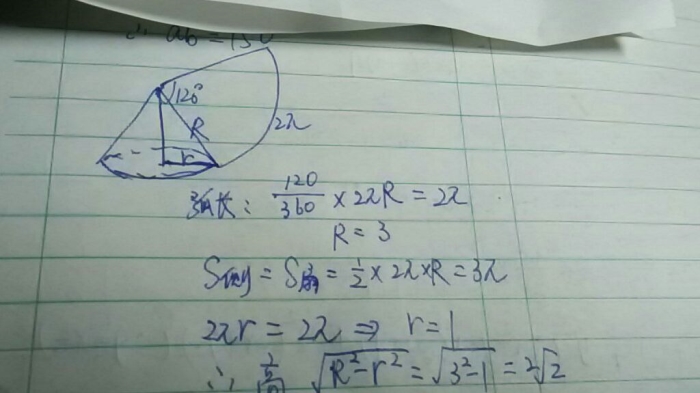 ∴ ab = 150
120°
R
2π
r
弧长: 120/360 × 2πR = 2π
R = 3
S侧 = S扇 = 1/2 × 2π × R = 3π
2πr = 2π ⇒ r = 1
∴ 高 √(R²-r²) = √(3²-1) = 2√2